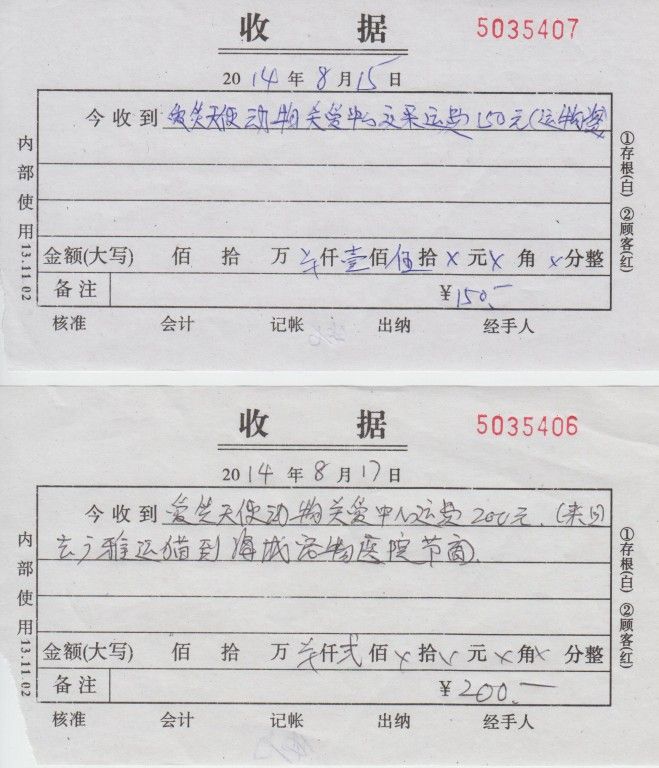 收 据
5035407
2014年8月15日
今收到 爱笑天使动物关爱中心交来运费150元(运物资)
金额(大写) 佰 拾 万 仟壹佰伍拾x元x角x分整
备注 ¥150.-
核准 会计 记帐 出纳 经手人
内部使用 13.11.02
①存根(白) ②顾客(红)
收 据
5035406
2014年8月17日
今收到 爱笑天使动物关爱中心运费200元.(来回
去广雅运猫到海城宠物医院节育).
金额(大写) 佰 拾 万 仟贰佰x拾x元x角x分整
备注 ¥200.-
核准 会计 记帐 出纳 经手人
内部使用 13.11.02
①存根(白) ②顾客(红)